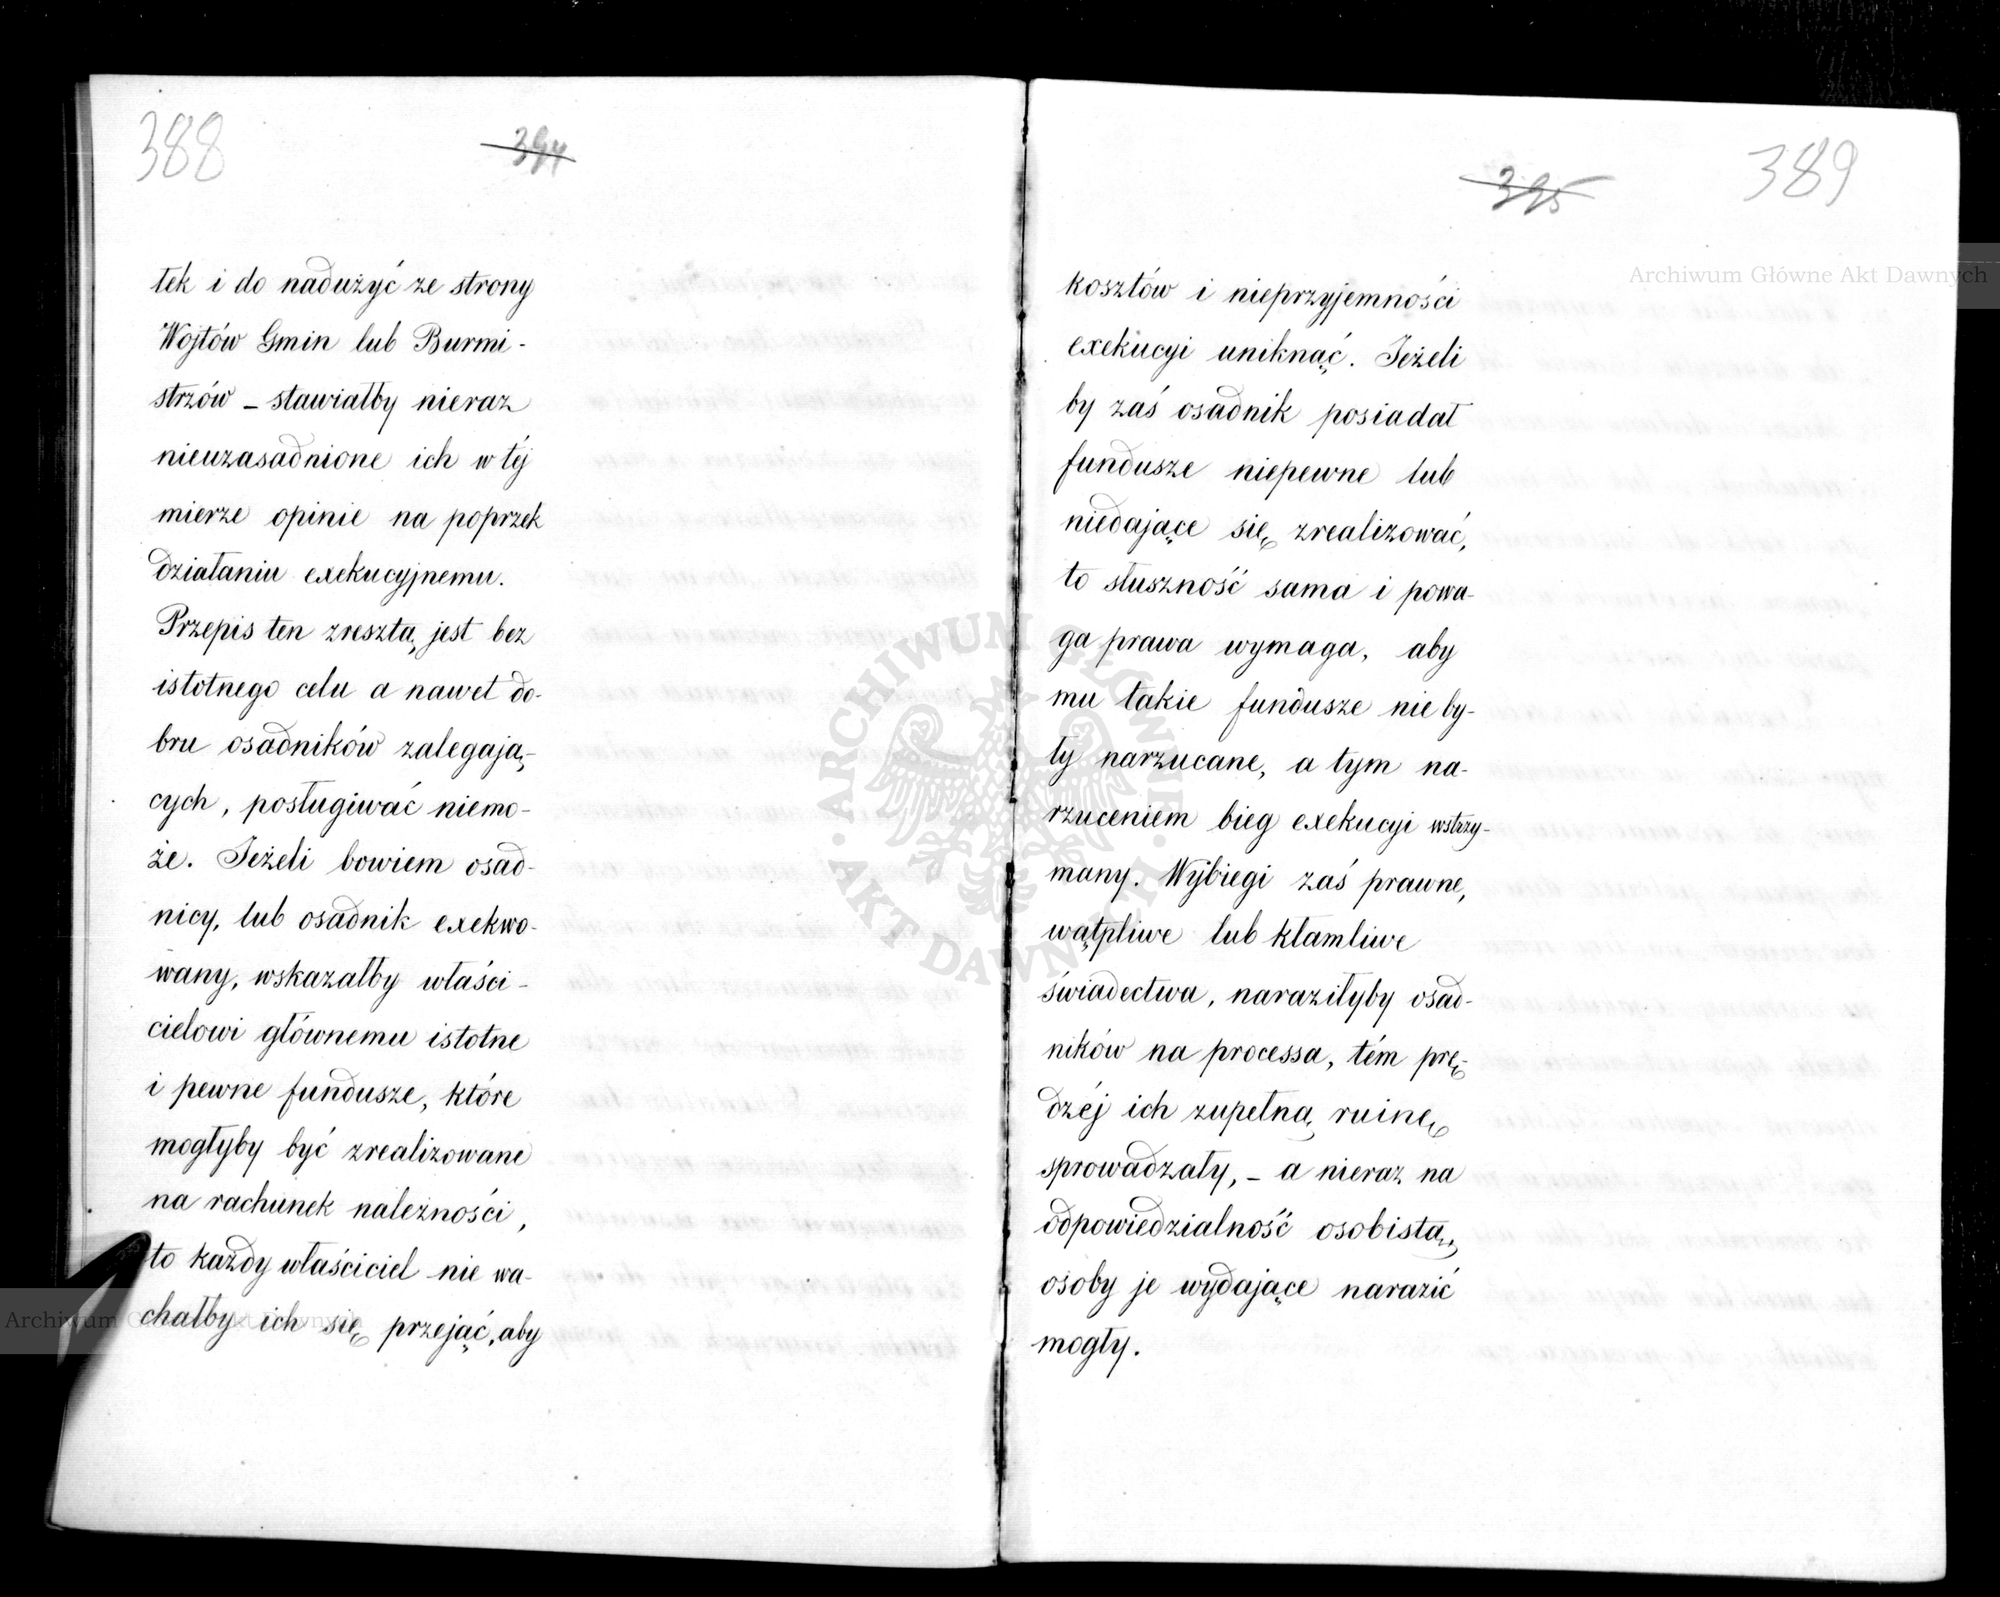 388
394
tek i do nadużyć ze strony
Wojtów Gmin lub Burmi-
strzów – stawiałby nieraz
nieuzasadnione ich w téj
mierze opinie na poprzek
działaniu exekucyjnemu.
Przepis ten zresztą jest bez
istotnego celu a nawet do-
bru osadników zalegają-
cych, posługiwać niemo-
że. Jeżeli bowiem osad-
nicy, lub osadnik exekwo-
wany, wskazałby właści-
cielowi głównemu istotne
i pewne fundusze, które
mogłyby być zrealizowane
na rachunek należności,
to każdy właściciel nie wa-
chałby ich się przejąć, aby
389
395
kosztów i nieprzyjemności
exekucyi uniknąć. Jeżeli
by zaś osadnik posiadał
fundusze niepewne lub
niedające się zrealizować,
to słuszność sama i powa-
ga prawa wymaga, aby
mu takie fundusze nie by-
ły narzucane, a tym na-
rzuceniem bieg exekucyi wstrzy-
many. Wybiegi zaś prawne,
wątpliwe lub kłamliwe
świadectwa, naraziłyby osad-
ników na processa, tém prę-
dzéj ich zupełną ruinę
sprowadzały, – a nieraz na
odpowiedzialność osobistą,
osoby je wydające narazić
mogły.
Archiwum Główne Akt Dawnych
ARCHIWUM GŁÓWNE AKT DAWNYCH
Archiwum Główne Akt Dawnych